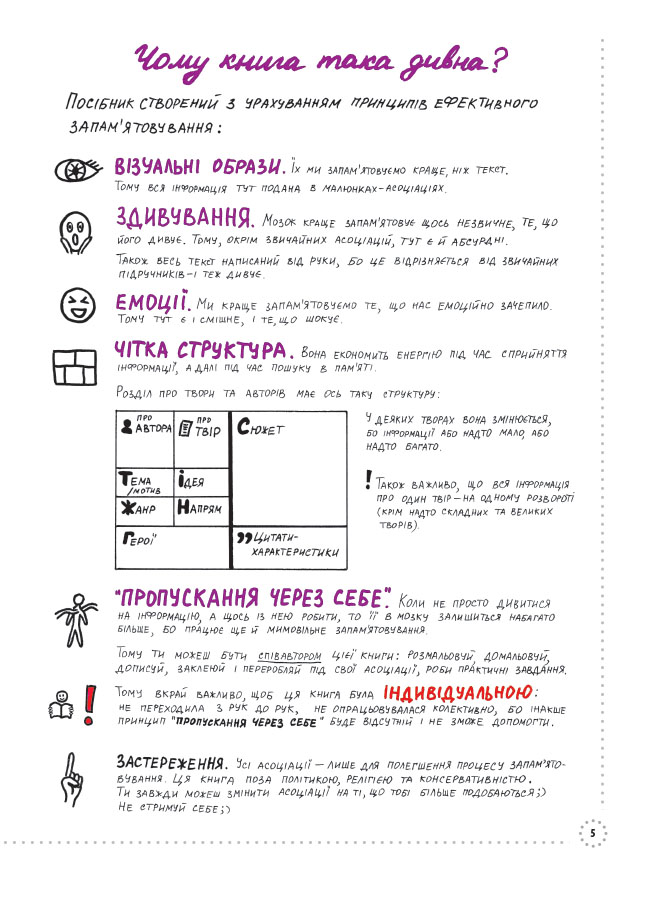 Чому книга така дивна?
Посібник створений з урахуванням принципів ефективного
запам'ятовування:
ВІЗУАЛЬНІ ОБРАЗИ. Їх ми запам'ятовуємо краще, ніж текст.
Тому вся інформація тут подана в малюнках-асоціаціях.
ЗДИВУВАННЯ. Мозок краще запам'ятовує щось незвичне, те, що
його дивує. Тому, окрім звичайних асоціацій, тут є й абсурдні.
Також весь текст написаний від руки, бо це відрізняється від звичайних
підручників – і теж дивує.
ЕМОЦІЇ. Ми краще запам'ятовуємо те, що нас емоційно зачепило.
Тому тут є і смішне, і те, що шокує.
ЧІТКА СТРУКТУРА. Вона економить енергію під час сприйняття
інформації, а далі під час пошуку в пам'яті.
Розділ про твори та авторів має ось таку структуру:
про автора
про твір
Сюжет
Тема
/мотив
Ідея
Жанр
Напрям
Герої
Цитати-
характеристики
У деяких творах вона змінюється,
бо інформації або надто мало, або
надто багато.
! Також важливо, що вся інформація
про один твір – на одному розвороті
(крім надто складних та великих
творів).
"ПРОПУСКАННЯ ЧЕРЕЗ СЕБЕ". Коли не просто дивитися
на інформацію, а щось із нею робити, то її в мозку залишиться набагато
більше, бо працює ще й мимовільне запам'ятовування.
Тому ти можеш бути співавтором цієї книги: розмальовуй, домальовуй,
дописуй, заклеюй і переробляй під свої асоціації, роби практичні завдання.
! Тому вкрай важливо, щоб ця книга була ІНДИВІДУАЛЬНОЮ:
не переходила з рук до рук, не опрацьовувалася колективно, бо інакше
принцип "пропускання через себе" буде відсутній і не зможе допомогти.
ЗАСТЕРЕЖЕННЯ. Усі асоціації – лише для полегшення процесу запам'ято-
вування. Ця книга поза політикою, релігією та консервативністю.
Ти завжди можеш змінити асоціації на ті, що тобі більше подобаються;)
Не стримуй себе;)
5